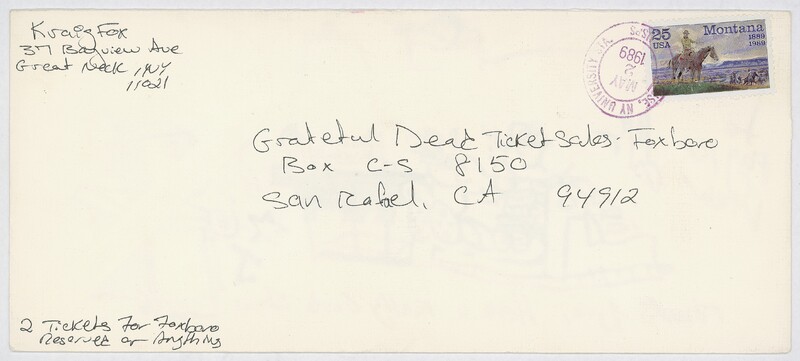 Kraig Fox
37 Bayview Ave
Great Neck, NY
11021
25
USA
Montana
1889
1989
SE, NY UNIVERSITY STA.
USPS
MAY
2
1989
Grateful Dead Ticket Sales - Foxboro
Box C-S 8150
San Rafael, CA 94912
2 Tickets For Foxboro
Reserved or Anything